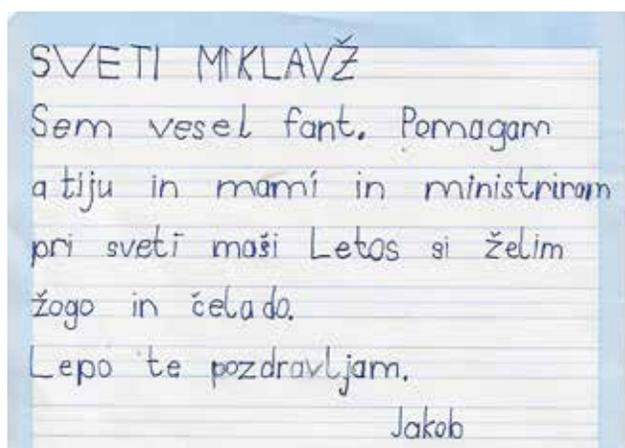 SVETI MIKLAVŽ
Sem vesel fant. Pomagam
atiju in mami in ministriram
pri sveti maši Letos si želim
žogo in čelado.
Lepo te pozdravljam.
Jakob